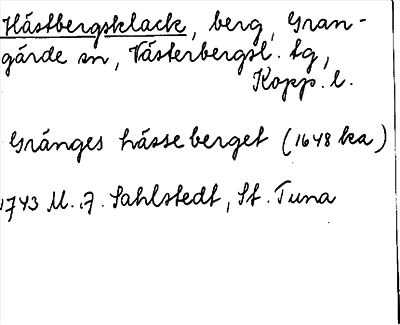 Hästbergsklack, berg, Gran-
gärde sn, Västerbergsl. tg,
Kopp. l.
Gränges hässeberget (1648 ka)
1743 U. F. Sahlstedt, St. Tuna